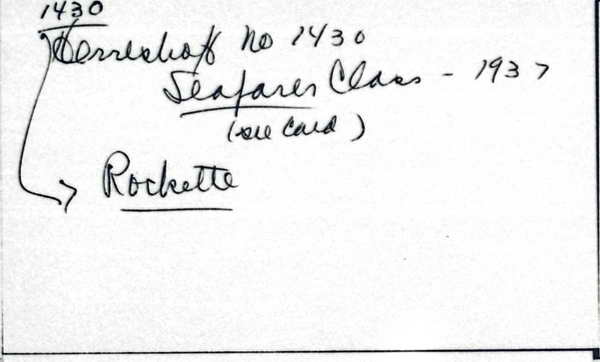 1430
Herreshoff No 1430
Seafarer Class - 1937
(see card)
Rockette